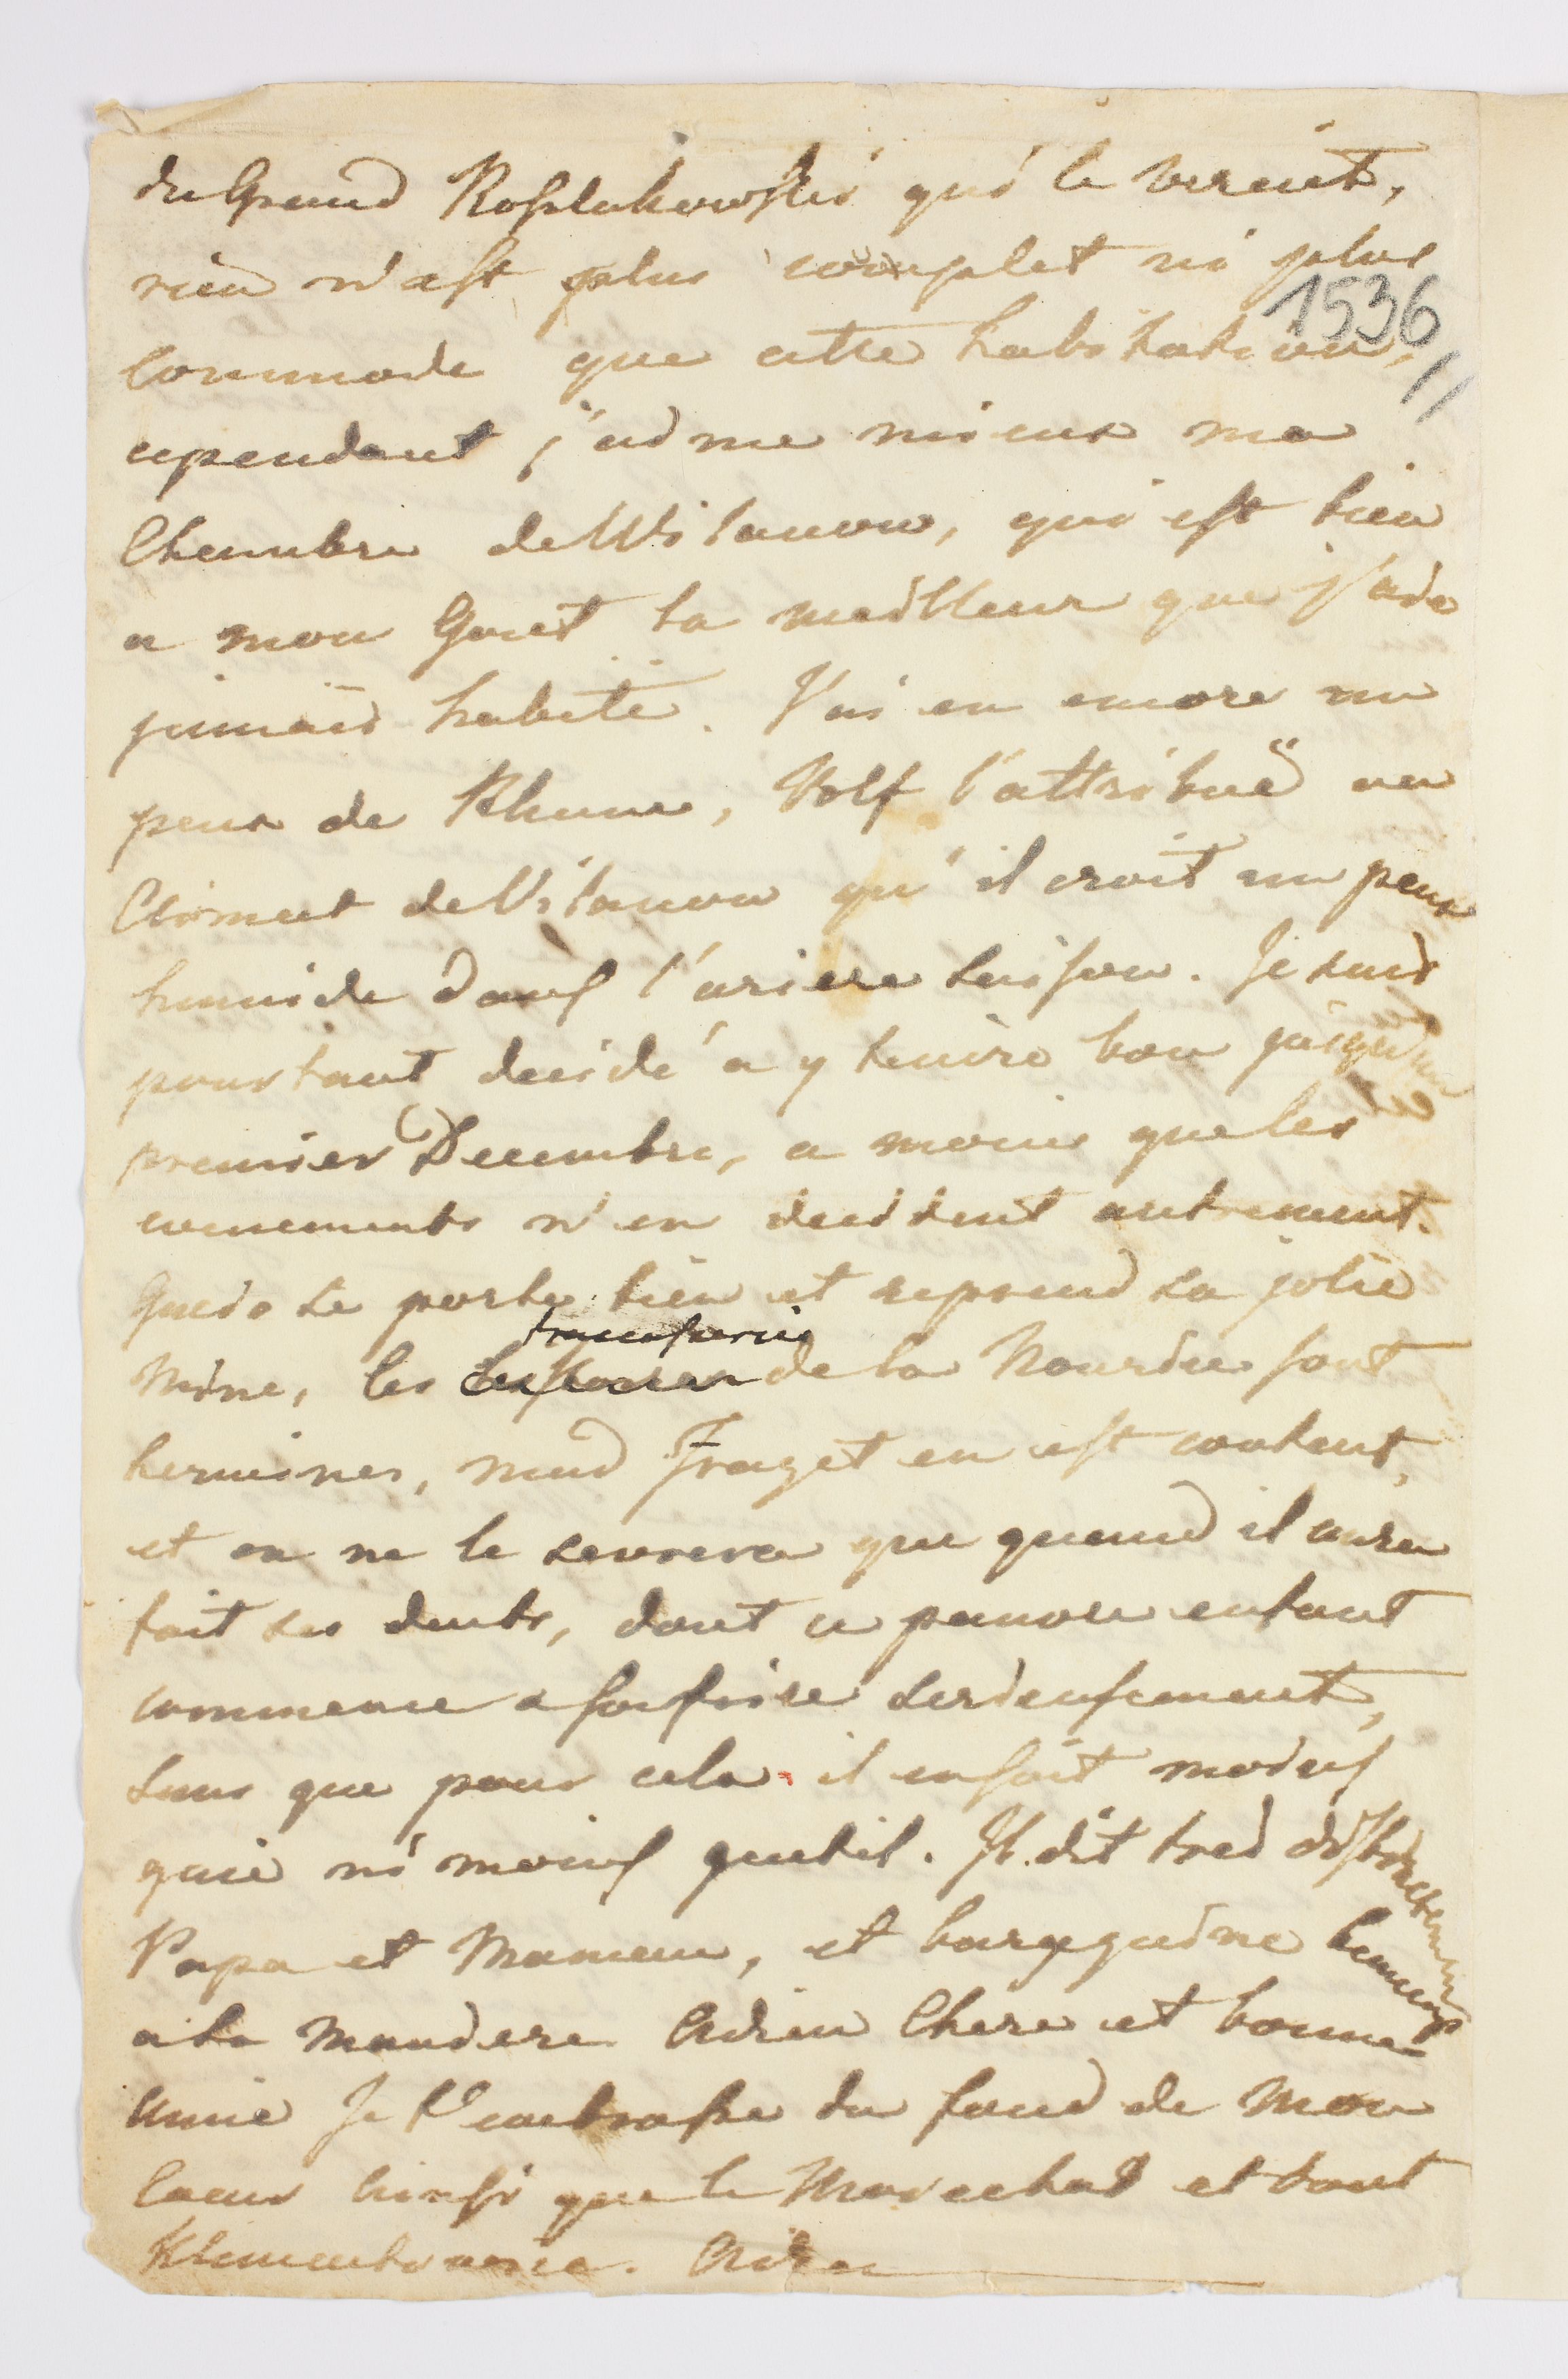 du Grand Roslakowski qui le verent,
rien n'est plus complet ni plus
1536
Commode que cette habitation,
cependant j'aime mieux ma
Chambre de Wilanow, qui est bien
a mon Gout la meilleur que j'aie
jamais habité. J'ai eu encore un
peux de Rhume, Wolf l'attribuë au
Climat de Vilanow qu'il croit un peux
humide dans l'ariere saison. Je suis
pourtant decidé a y tenire bon jusqu'au
premier Decembre, a moins que les
evenements n'en decident autrement.
Gucio se porte bien et reprend sa jolie
Mine, les transperie de la Nourice sont
terminer, mad Fraget en est contant,
et on ne le sevrera que quand il aura
fait ses dents, dont ce pauvre enfant
commence a soufrire serieusement,
sans que pour cela il en soit moins
gaie ni moins gentil. Il dit tres distinctement
Papa et Maman, et baragguine beaucoup
a sa maniere. Adieu Chere et bonne
Amie Je t'embrasse du fond de Mon
Coeur ainsi que le Marechal et tout
Klimentowice. Adieu